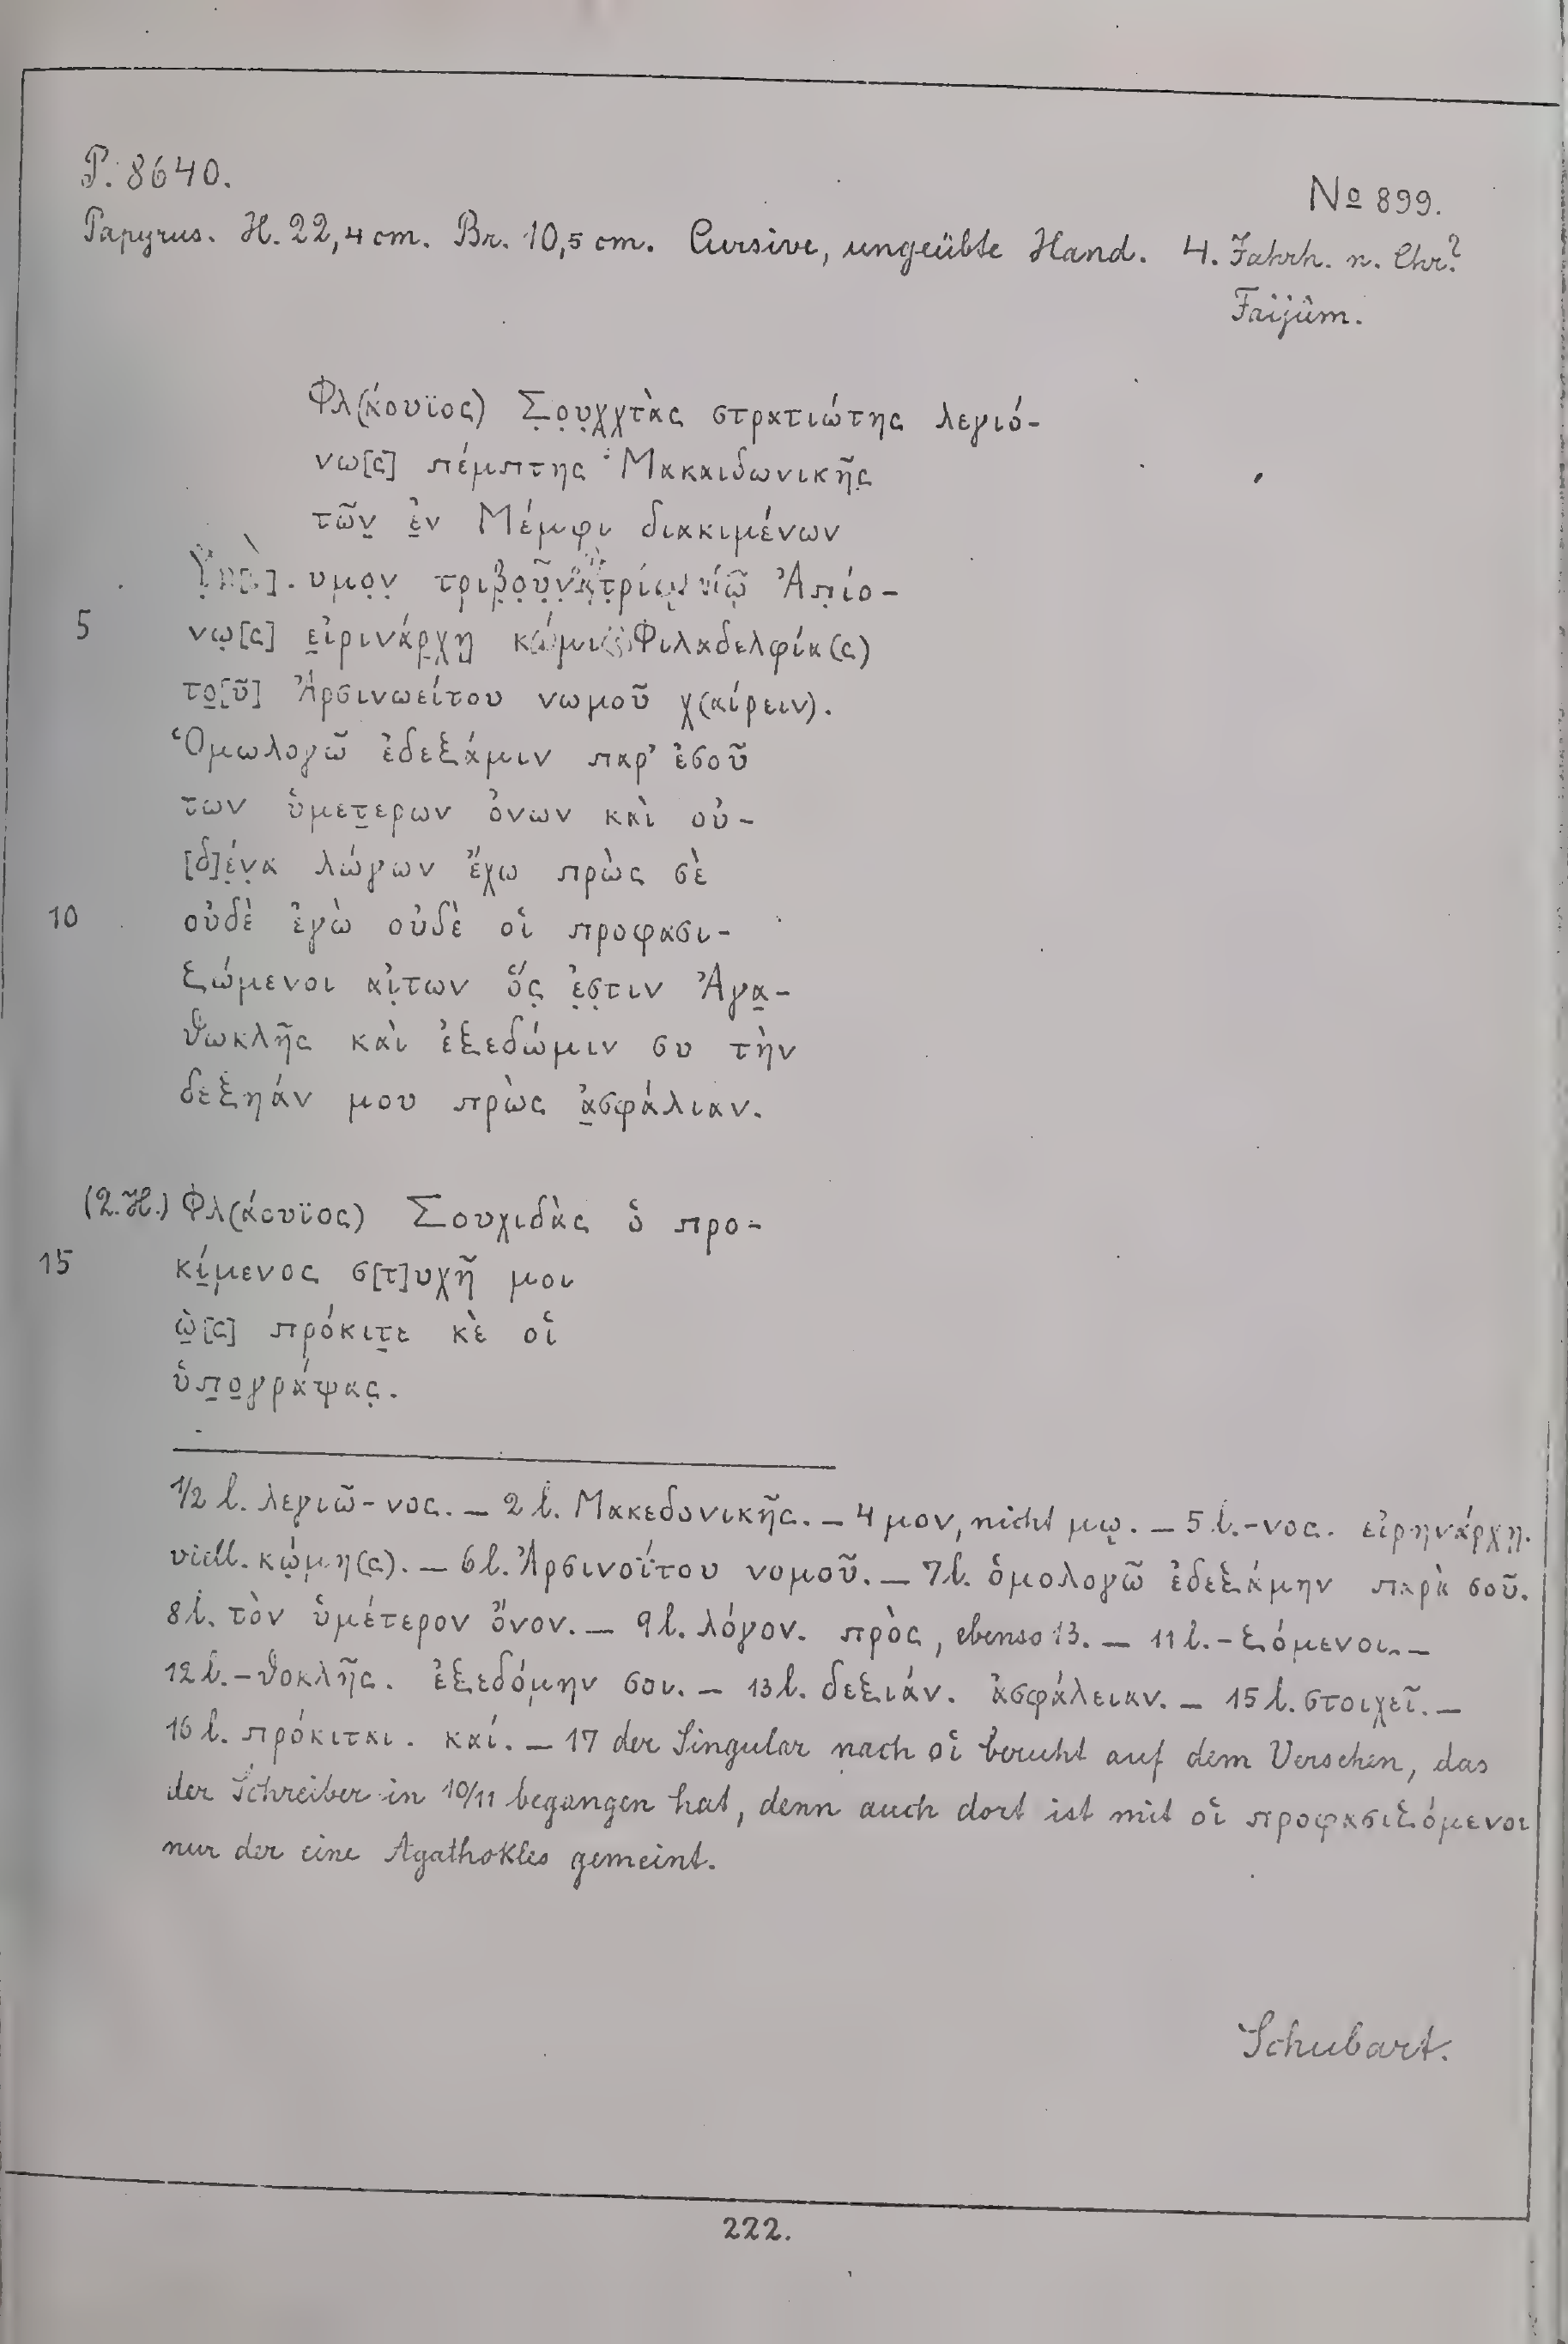 P. 8640.
No 899.
Papyrus. H. 22,4 cm. Br. 10,5 cm. Cursive, ungeübte Hand. 4. Jahrh. n. Chr.?
Faijûm.
Φλ(άουϊος) Σ̣ο̣υ̣χ̣χτὰς στρατιώτης λεγιό-
νω[ς] πέμπτης Μακαιδωνικῆς
τῶν̣ ἐ̣ν Μέμφι διακιμένων
υμο̣ν̣ Ἀπ̣ίο-
5 νω̣[ς] ε̣ἰρινάρ̣χῃ Φιλαδελφία(ς)
το̣[ῦ] Ἀρσινωείτου νωμοῦ χ(αίρειν).
Ὁμωλογῶ ἐδεξάμιν παρ’ ἐσοῦ
των ὑμετ̣ερων ὀνων καὶ οὐ-
[δ]έ̣ν̣α λώγων ἔχω πρὼς σὲ
10 οὐδὲ ἐγὼ οὐδὲ οἱ προφασι-
ξώμενοι αἰ̣των ὅς̣ ἐ̣σ̣τιν Ἀγα̣-
θωκλῆς καὶ ἐξεδώμιν συ τὴν
δεξηάν μου πρὼς ἀ̣σφάλιαν.
(2. H.) Φλ(άουϊος) Σουχιδὰς ὁ προ-
15 κί̣μενος σ[τ]υχῆ μοι
ὡ̣[ς] πρόκιτ̣ε κὲ οἱ
ὑπ̣ο̣γράψας̣.
1/2 l. λεγιῶ-νος. — 2 l. Μακεδονικῆς. — 4 μον, nicht μῳ. — 5 l. -νος. εἰρηνάρχῃ.
viell. κώ̣μη(ς). — 6 l. Ἀρσινοΐτου νομοῦ. — 7 l. ὁμολογῶ ἐδεξάμην παρὰ σοῦ.
8 l. τὸν ὑμέτερον ὄνον. — 9 l. λόγον. πρὸς, ebenso 13. — 11 l. -ξόμενοι. —
12 l. -θοκλῆς. ἐξεδόμην σοι. — 13 l. δεξιάν. ἀσφάλειαν. — 15 l. στοιχεῖ. —
16 l. πρόκιται. καί. — 17 der Singular nach οἱ beruht auf dem Versehen, das
der Schreiber in 10/11 begangen hat, denn auch dort ist mit οἱ προφασιξόμενοι
nur der eine Agathokles gemeint.
Schubart.
222.